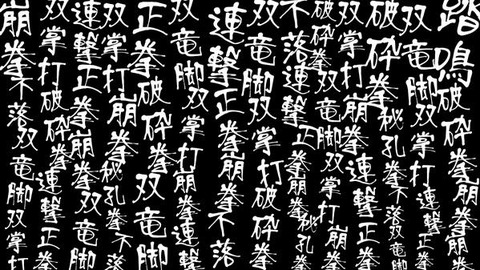 踏鳴破砕拳
双竜脚双掌打崩拳
破砕拳秘孔拳不落双竜脚
双掌打破砕拳連撃正拳
破砕拳双竜脚双掌打崩拳
不落連撃正拳崩拳秘孔拳
双竜脚双掌打破砕拳
連撃正拳崩拳不落
双竜脚双掌打崩拳連撃
正拳破砕拳双竜脚
双掌打破砕拳秘孔拳不落
双竜脚連撃正拳崩拳双竜
破砕拳崩拳連撃正拳
崩拳不落双竜脚双掌打